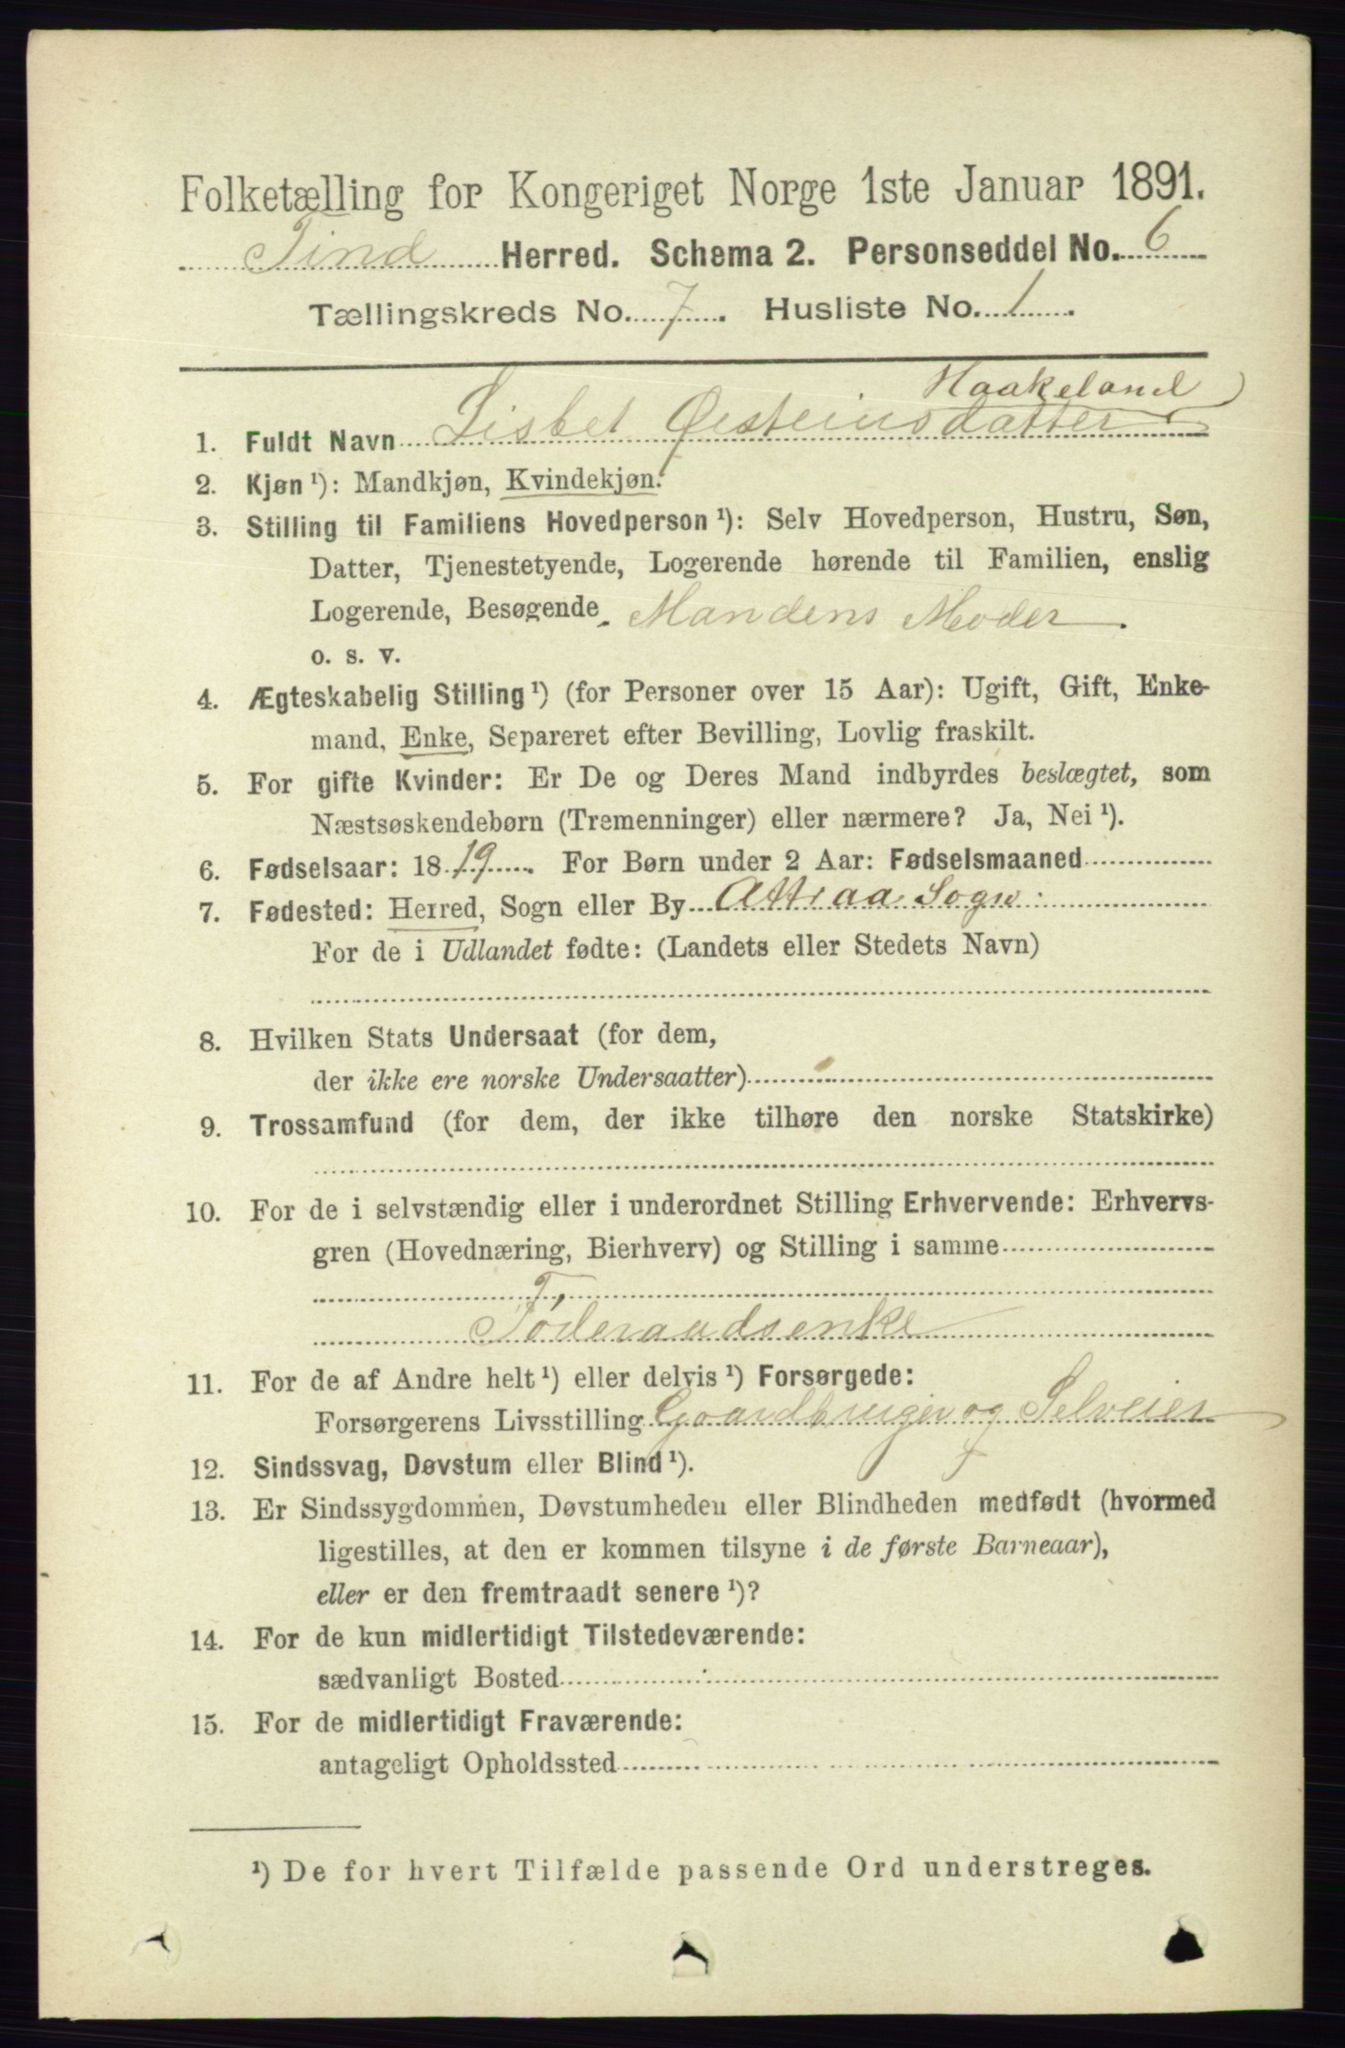 Folketælling for Kongeriget Norge 1ste Januar 1891.
Tind Herred. Schema 2. Personseddel No. 6
Tællingskreds No. 7. Husliste No. 1.
Haakeland
1. Fuldt Navn Lisbet Øisteinsdatter
2. Kjøn ¹): Mandkjøn, Kvindekjøn.
3. Stilling til Familiens Hovedperson ¹): Selv Hovedperson, Hustru, Søn,
Datter, Tjenestetyende, Logerende hørende til Familien, enslig
Logerende, Besøgende. Mandens Moder.
o. s. v.
4. Ægteskabelig Stilling ¹) (for Personer over 15 Aar): Ugift, Gift, Enke-
mand, Enke, Separeret efter Bevilling, Lovlig fraskilt.
5. For gifte Kvinder: Er De og Deres Mand indbyrdes beslægtet, som
Næstsøskendebørn (Tremenninger) eller nærmere? Ja, Nei ¹).
6. Fødselsaar: 1819. For Børn under 2 Aar: Fødselsmaaned
7. Fødested: Herred, Sogn eller By Attraa Sogn
For de i Udlandet fødte: (Landets eller Stedets Navn)
8. Hvilken Stats Undersaat (for dem,
der ikke ere norske Undersaatter)
9. Trossamfund (for dem, der ikke tilhøre den norske Statskirke)
10. For de i selvstændig eller i underordnet Stilling Erhvervende: Erhvervs-
gren (Hovednæring, Bierhverv) og Stilling i samme
Føderaadsenke
11. For de af Andre helt ¹) eller delvis ¹) Forsørgede:
Forsørgerens Livsstilling Gaardbruger og Selveier
12. Sindssvag, Døvstum eller Blind ¹).
13. Er Sindssygdommen, Døvstumheden eller Blindheden medfødt (hvormed
ligestilles, at den er kommen tilsyne i de første Barneaar),
eller er den fremtraadt senere ¹)?
14. For de kun midlertidigt Tilstedeværende:
sædvanligt Bosted
15. For de midlertidigt Fraværende:
antageligt Opholdssted
¹) De for hvert Tilfælde passende Ord understreges.